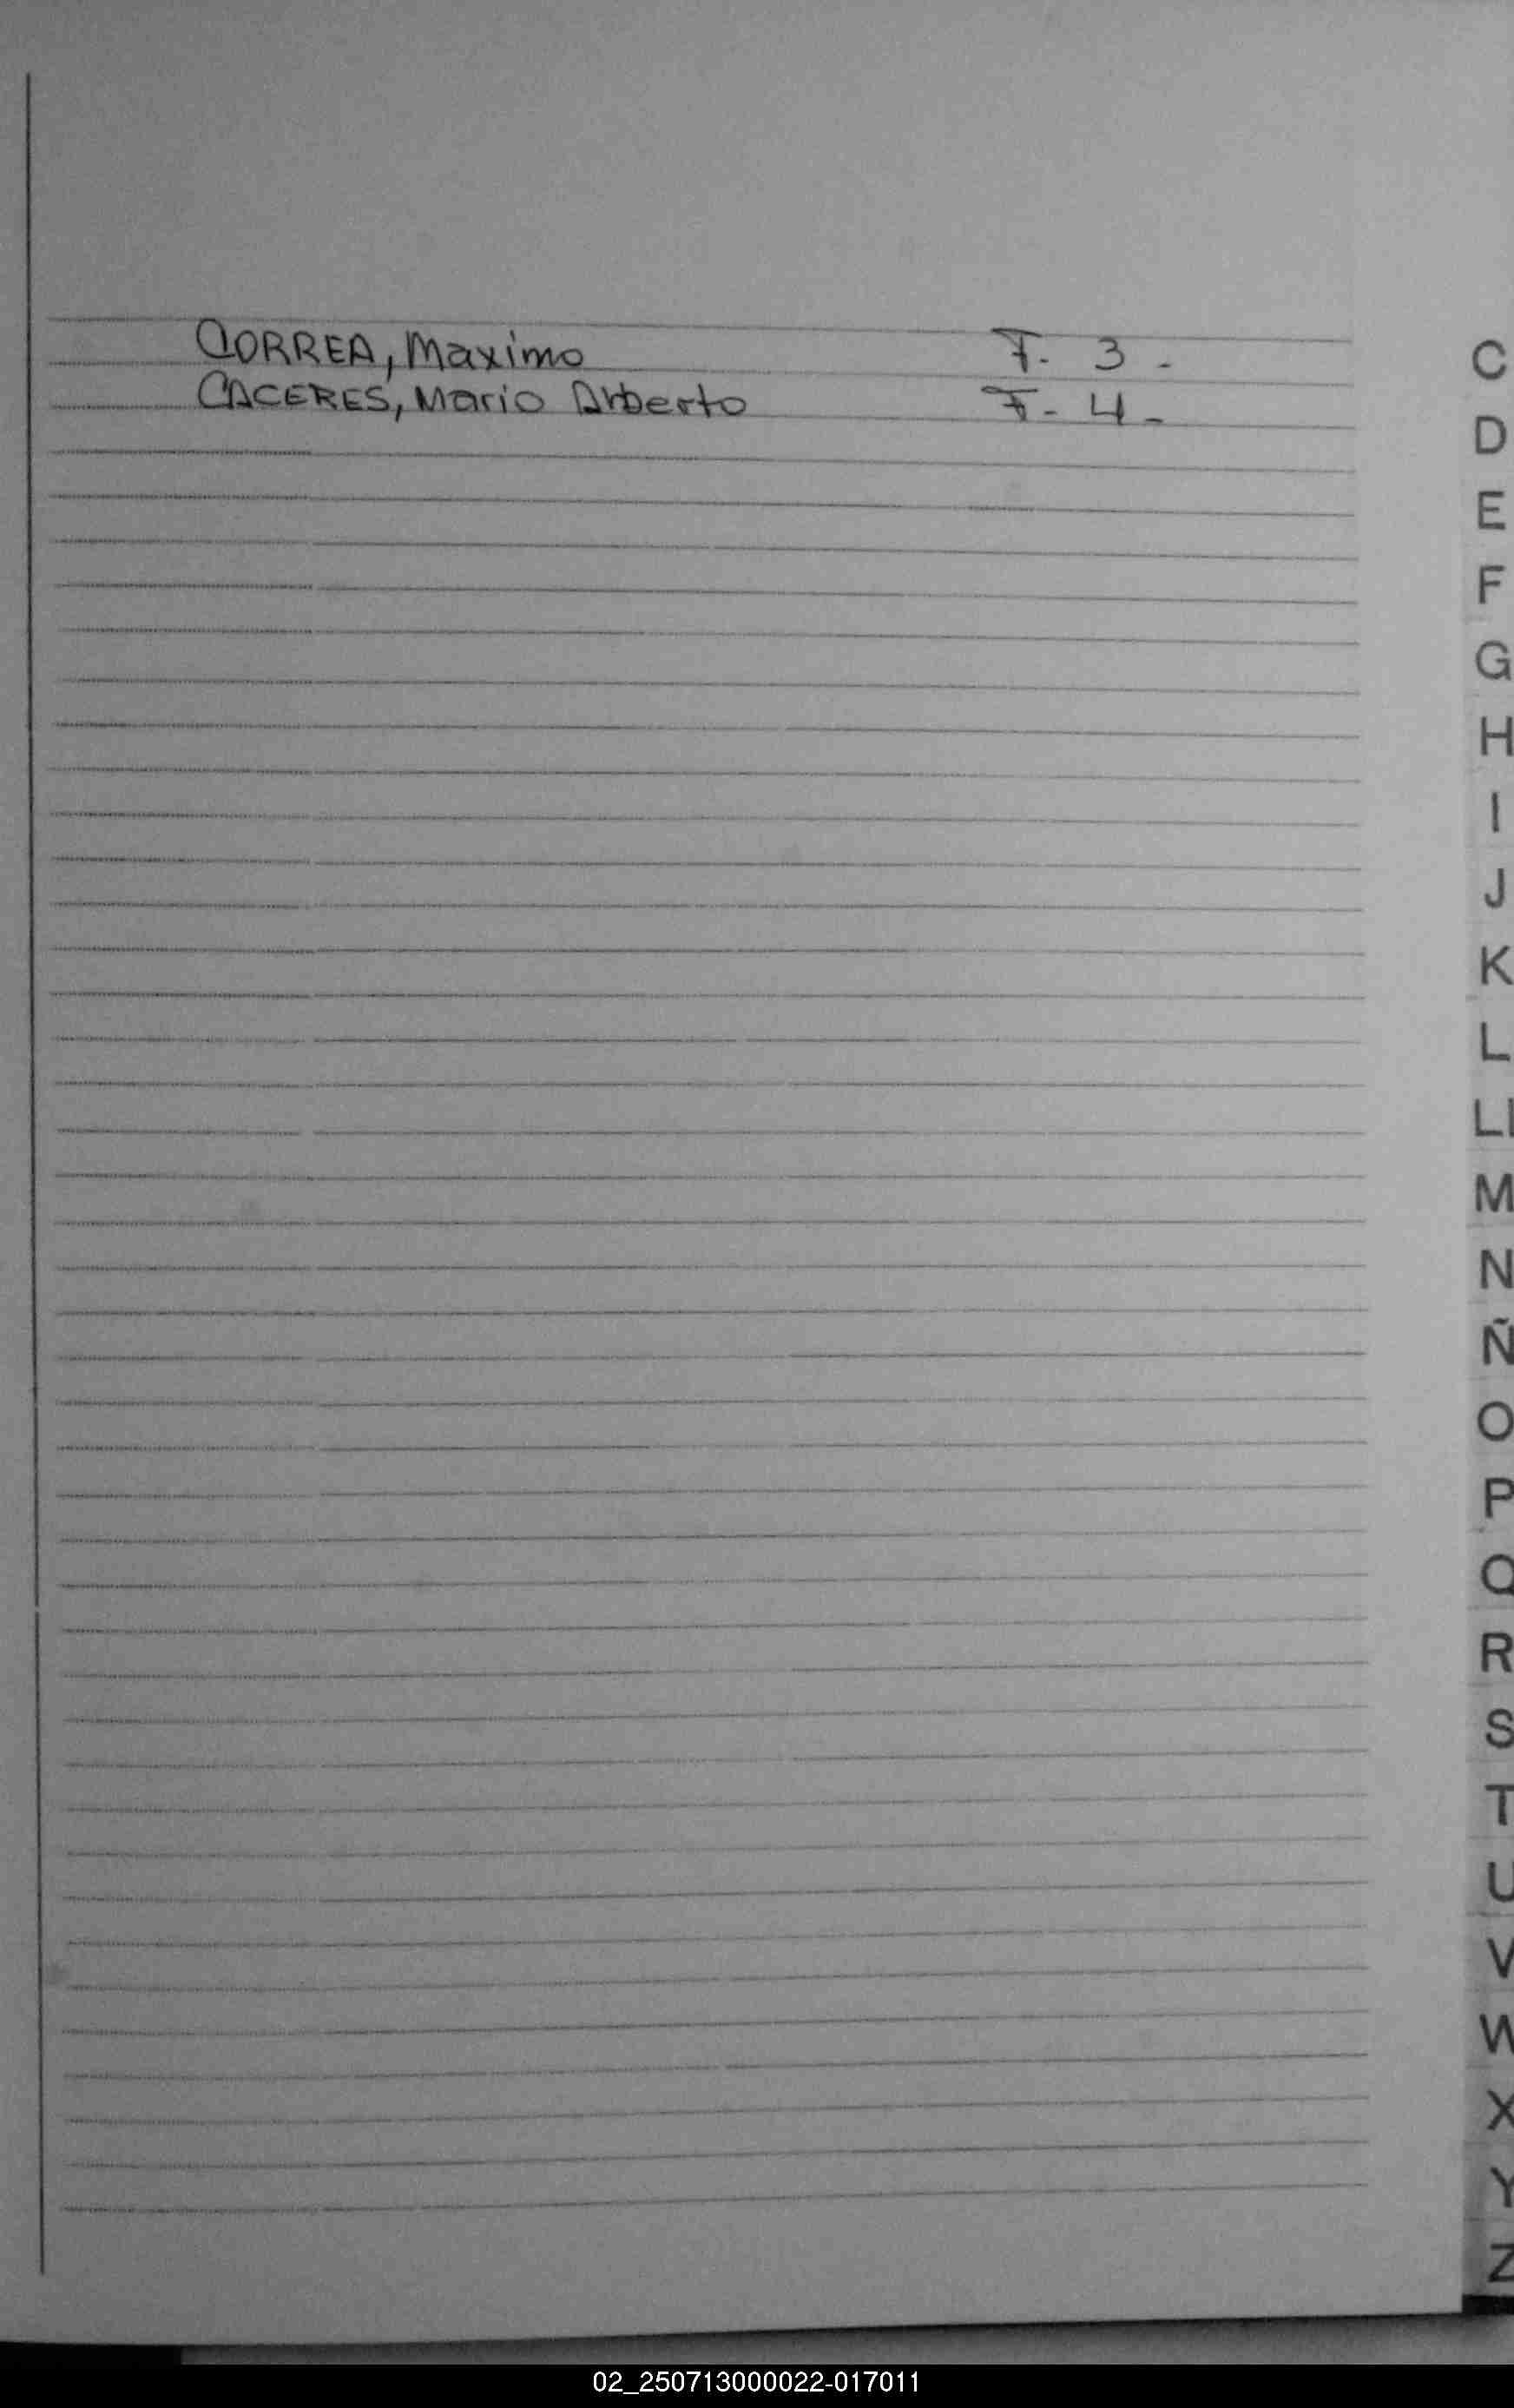 CORREA, Maximo F. 3 -
CACERES, Mario Alberto F. 4 -
C
D
E
F
G
H
I
J
K
L
Ll
M
N
Ñ
O
P
Q
R
S
T
U
V
W
X
Y
Z
02_250713000022-017011